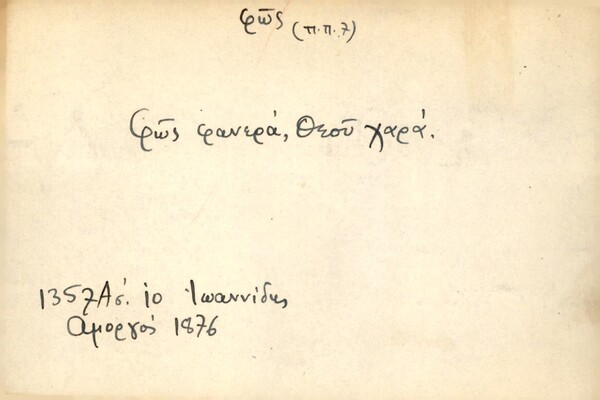 φῶς (π.π.7)
Φῶς φανερά, Θεοῦ χαρά.
1357 Ἀσ. ιο Ἰωαννίδης
Αμοργός 1876